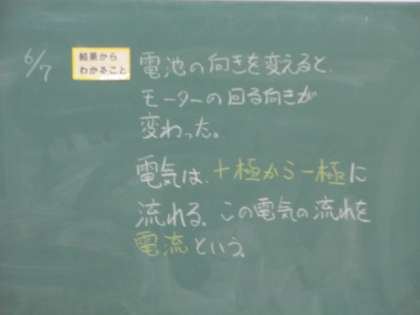 6/7
結果から
わかること
電池の向きを変えると、
モーターの回る向きが
変わった。
電気は、+極から-極に
流れる。この電気の流れを
電流という。